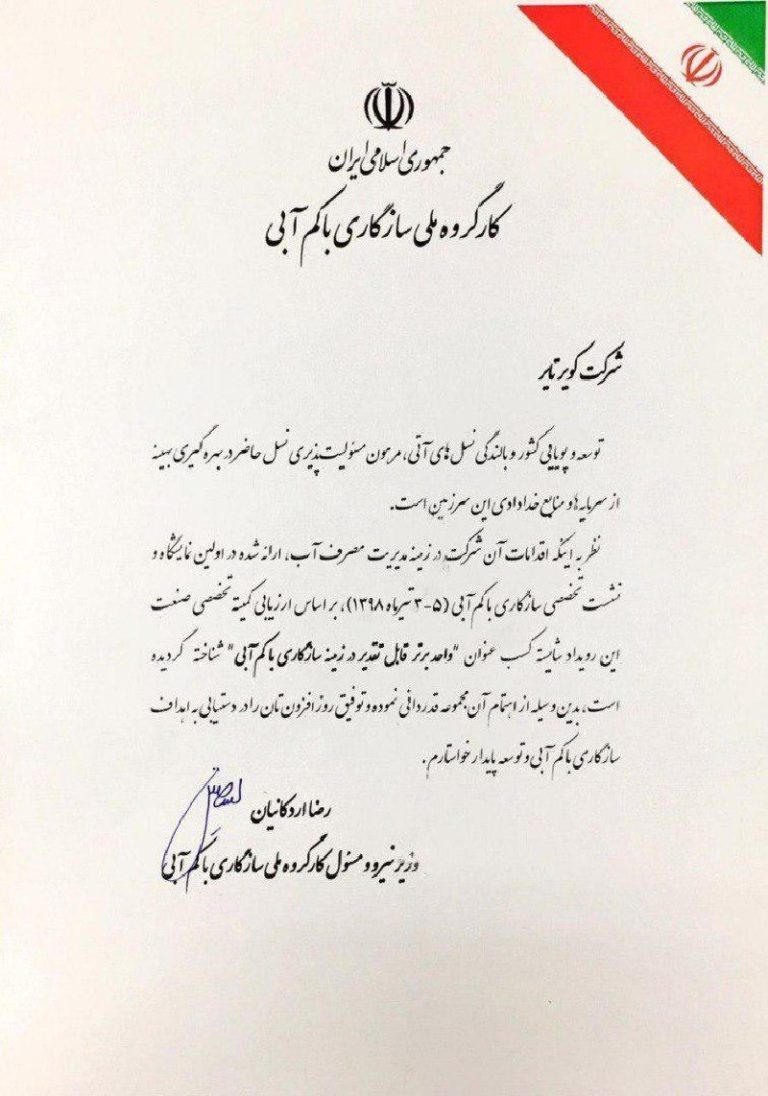 جمهوری اسلامی ایران
کارگروه ملی سازگاری با کم آبی
شرکت کویر تایر
توسعه و پویایی کشور و بالندگی نسل های آتی، مرهون مسئولیت پذیری نسل حاضر در بهره گیری بهینه
از سرمایه ها و منابع خدادادی این سرزمین است.
نظر به اینکه اقدامات آن شرکت در زمینه مدیریت مصرف آب، ارائه شده در اولین نمایشگاه و
نشست تخصصی سازگاری با کم آبی (۵-۳ تیرماه ۱۳۹۸)، بر اساس ارزیابی کمیته تخصصی صنعت
این رویداد شایسته کسب عنوان "واحد برتر قابل تقدیر در زمینه سازگاری با کم آبی" شناخته گردیده
است، بدین وسیله از اهتمام آن مجموعه قدردانی نموده و توفیق روز افزون تان را در دستیابی به اهداف
سازگاری با کم آبی و توسعه پایدار خواستارم.
رضا اردکانیان
وزیر نیرو و مسئول کارگروه ملی سازگاری با کم آبی